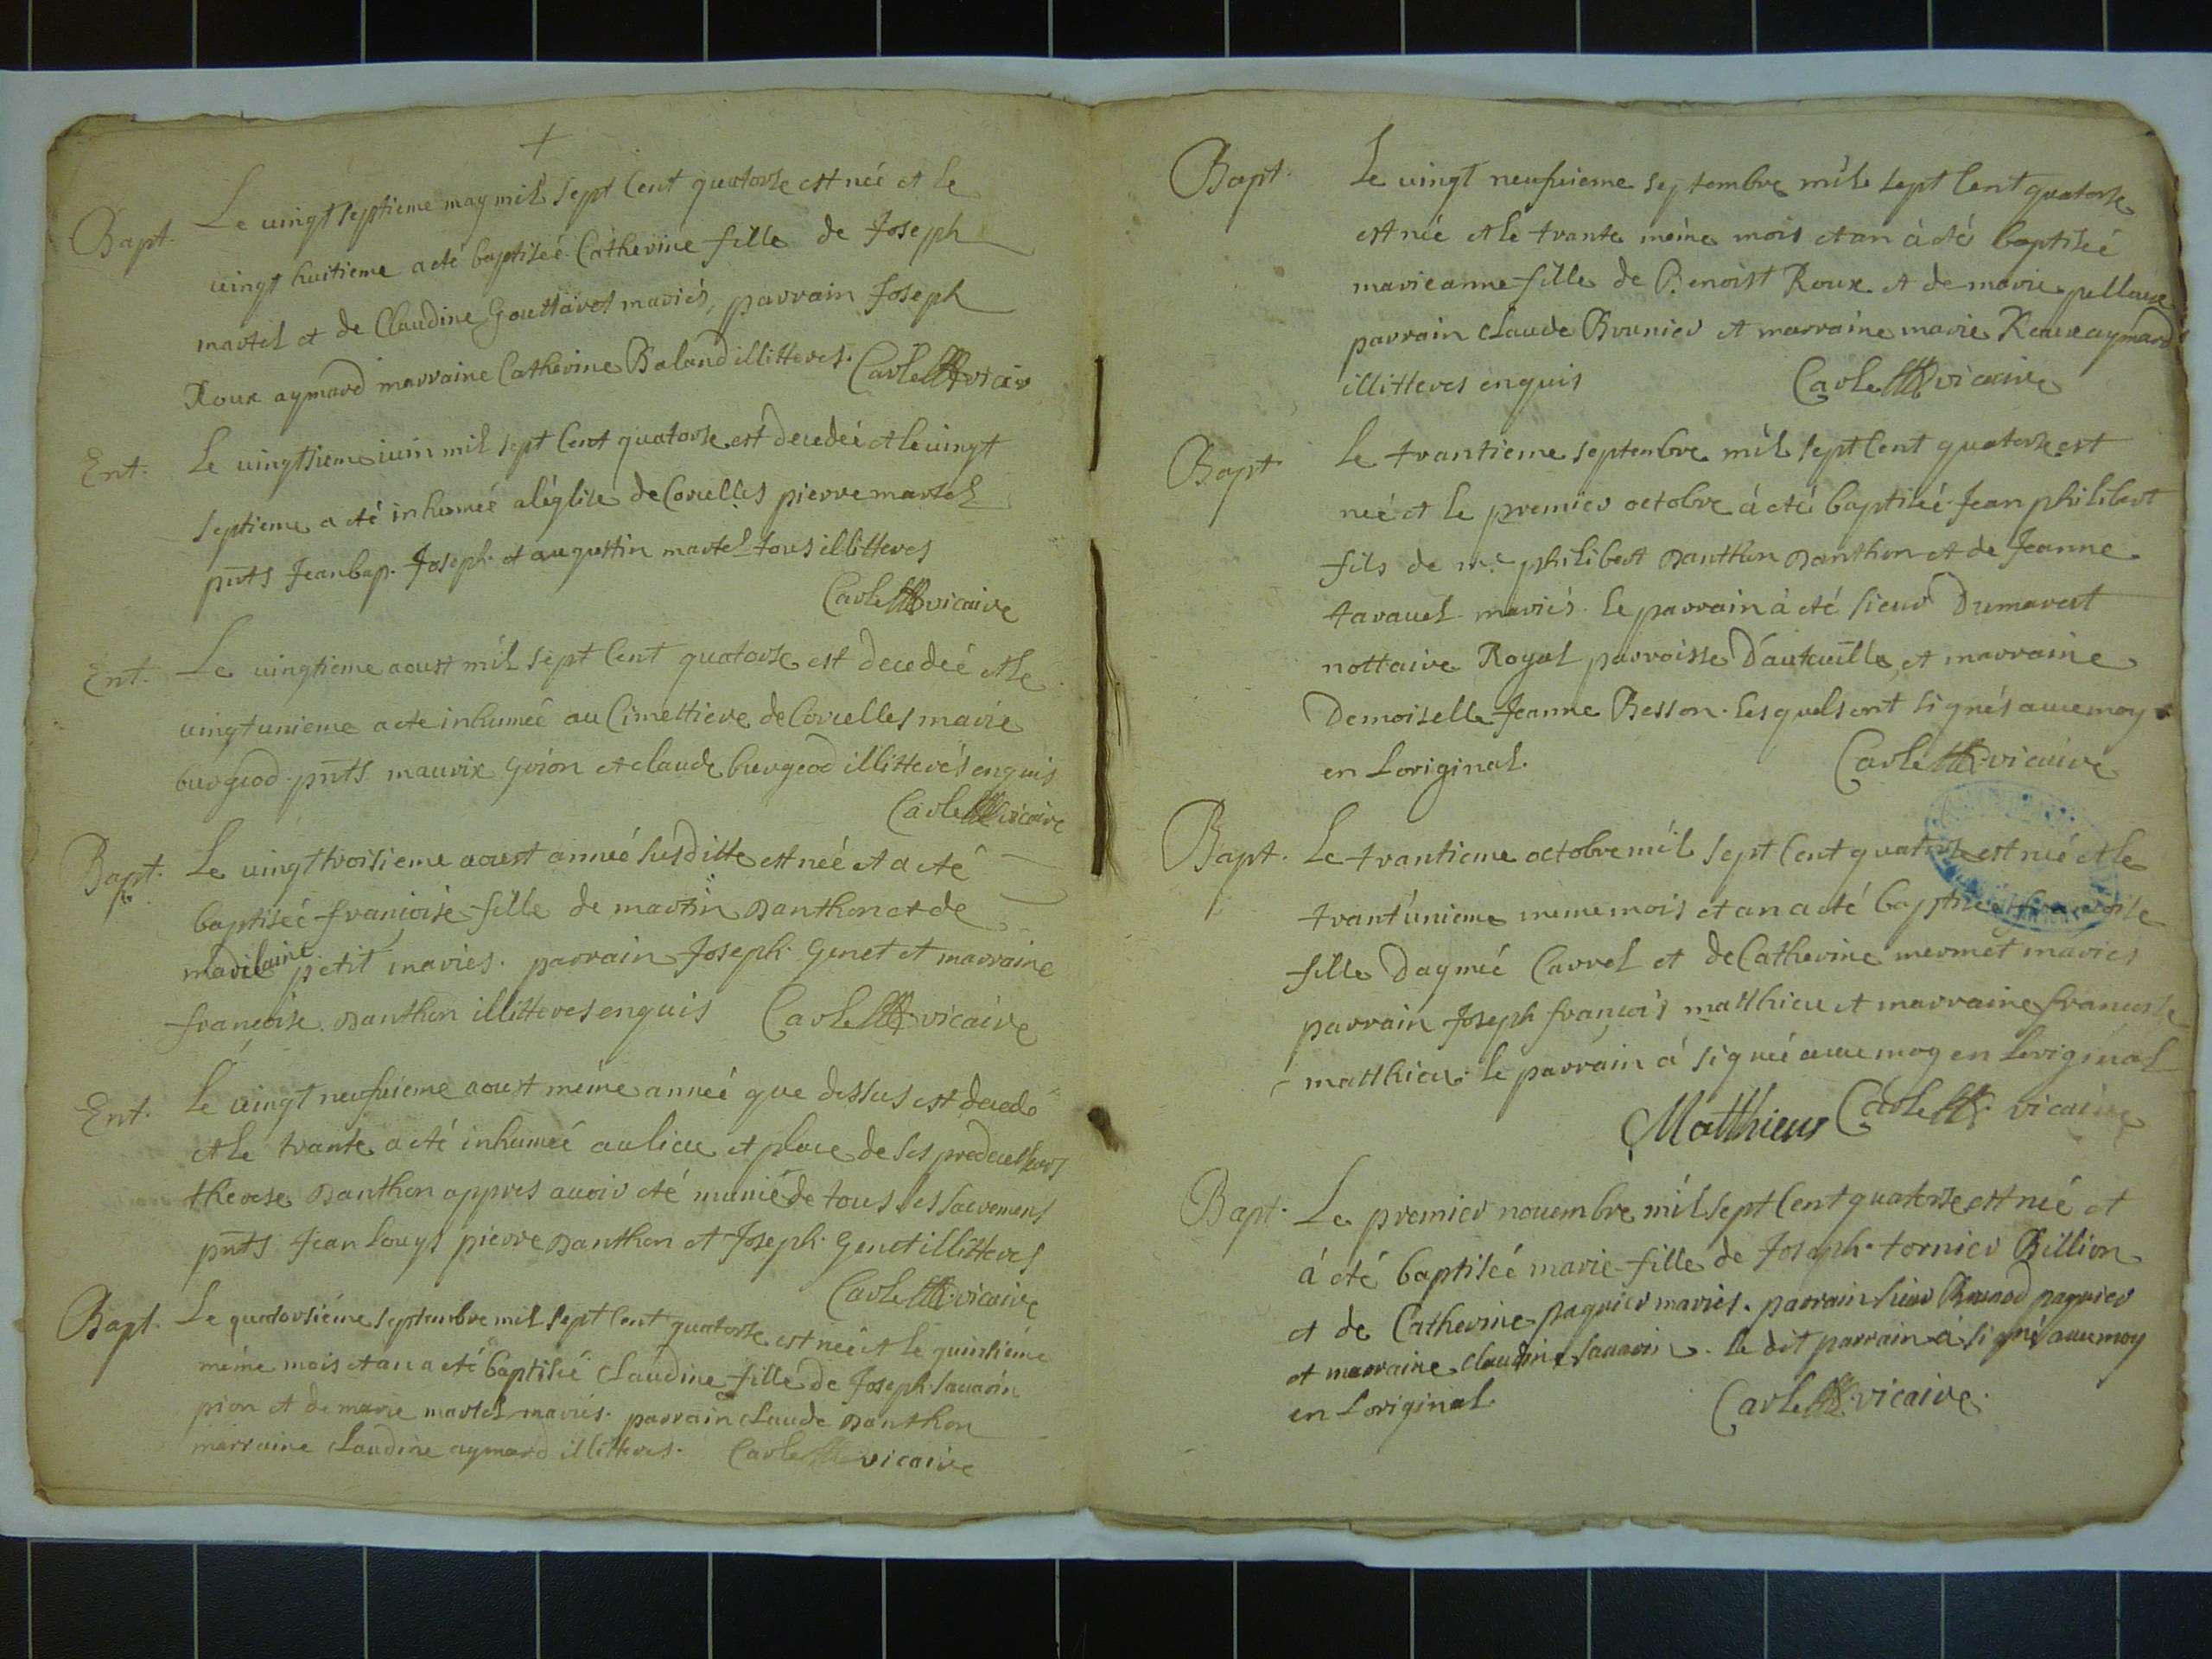 +
Bapt. Le vingt septieme may mil sept Cent quatorse est neé et le
vingt huitieme a eté baptiseé Catherine fille de Joseph
martel et de Claudine Gouttaret mariés, parrain Joseph
Roux aymard marraine Catherine Baland illitteres. Carle vicair
Ent. Le vingtsieme iuin mil sept Cent quatorse est decedeé et le vingt
septieme a eté inhumeé a léglise de Corcelles pierre martel
pnts Jean bap. Joseph et augustin martel tous illitteres
Carle vicaire
Ent. Le vingtieme aoust mil sept Cent quatorse est decedeé et le
vingtunieme a eté inhumeé au Cimettiere de Corcelles marie
burgeod pnts maurix goion et claude burgeod illitterés enquis
Carle vicaire
Bapt. Le vingttroisieme aoust anneé susditte est neé et a eté
baptiseé françoise fille de martin Danthon et de
madelaine petit mariés. parrain Joseph Genet et marraine
françoise Danthon illitteres enquis Carle vicaire
Ent. Le vingt neufuieme aoust méme anneé que dessus est decedé
et le trante a eté inhumeé au lieu et place de ses predecesseurs
therese Danthon appres avoir eté munie de tous les sacremens
pnts Jean Louys pierre Danthon et Joseph Genet illitteres
Carle vicaire
Bapt. Le quatorsiéme septembre mil sept Cent quatorse est neé et le quinsiéme
méme mois et an a eté baptiseé Claudine fille de Joseph Sauarin
pion et de marie martel mariés. parrain claude Danthon
marraine claudine aymard illitteres. Carle vicaire
Bapt. Le vingt neufuieme septembre mil sept Cent quatorse
est neé et le trante méme mois et an à eté baptiseé
marieanne fille de Benoist Roux et de marie pellaux
parrain claude Brunier et marraine marie Roux aymard
illitteres enquis Carle vicaire
Bapt Le trantieme septembre mil sept Cent quatorse est
neé et le premier octobre à eté baptiseé Jean philibert
fils de me philibert Danthon Danthon et de Jeanne
tarauel mariés. Le parrain à eté sieur Dumarest
nottaire Royal parroisse D'autuille et marraine
Demoiselle Jeanne Besson. Lesquels ont signés auec moy
en Loriginal. Carle vicaire
Bapt. Le trantieme octobre mil sept Cent quatorse est neé et le
trant'unieme meme mois et an a eté baptiseé francoise
fille Daymé Carrel et de Catherine mermet maries
parrain Joseph françois matthieu et marraine francoise
matthieu. le parrain a' signé auec moy en Loriginal
Matthieu Carle vicaire
Bapt. Le premier nouembre mil sept Cent quatorse est neé et
à eté baptiseé marie fille de Joseph tornier Billion
et de Catherine paquier mariés. parrain sieur paquier
et marraine claudine Sauarin. Le dit parrain à signé auec moy
en Loriginal. Carle vicaire.